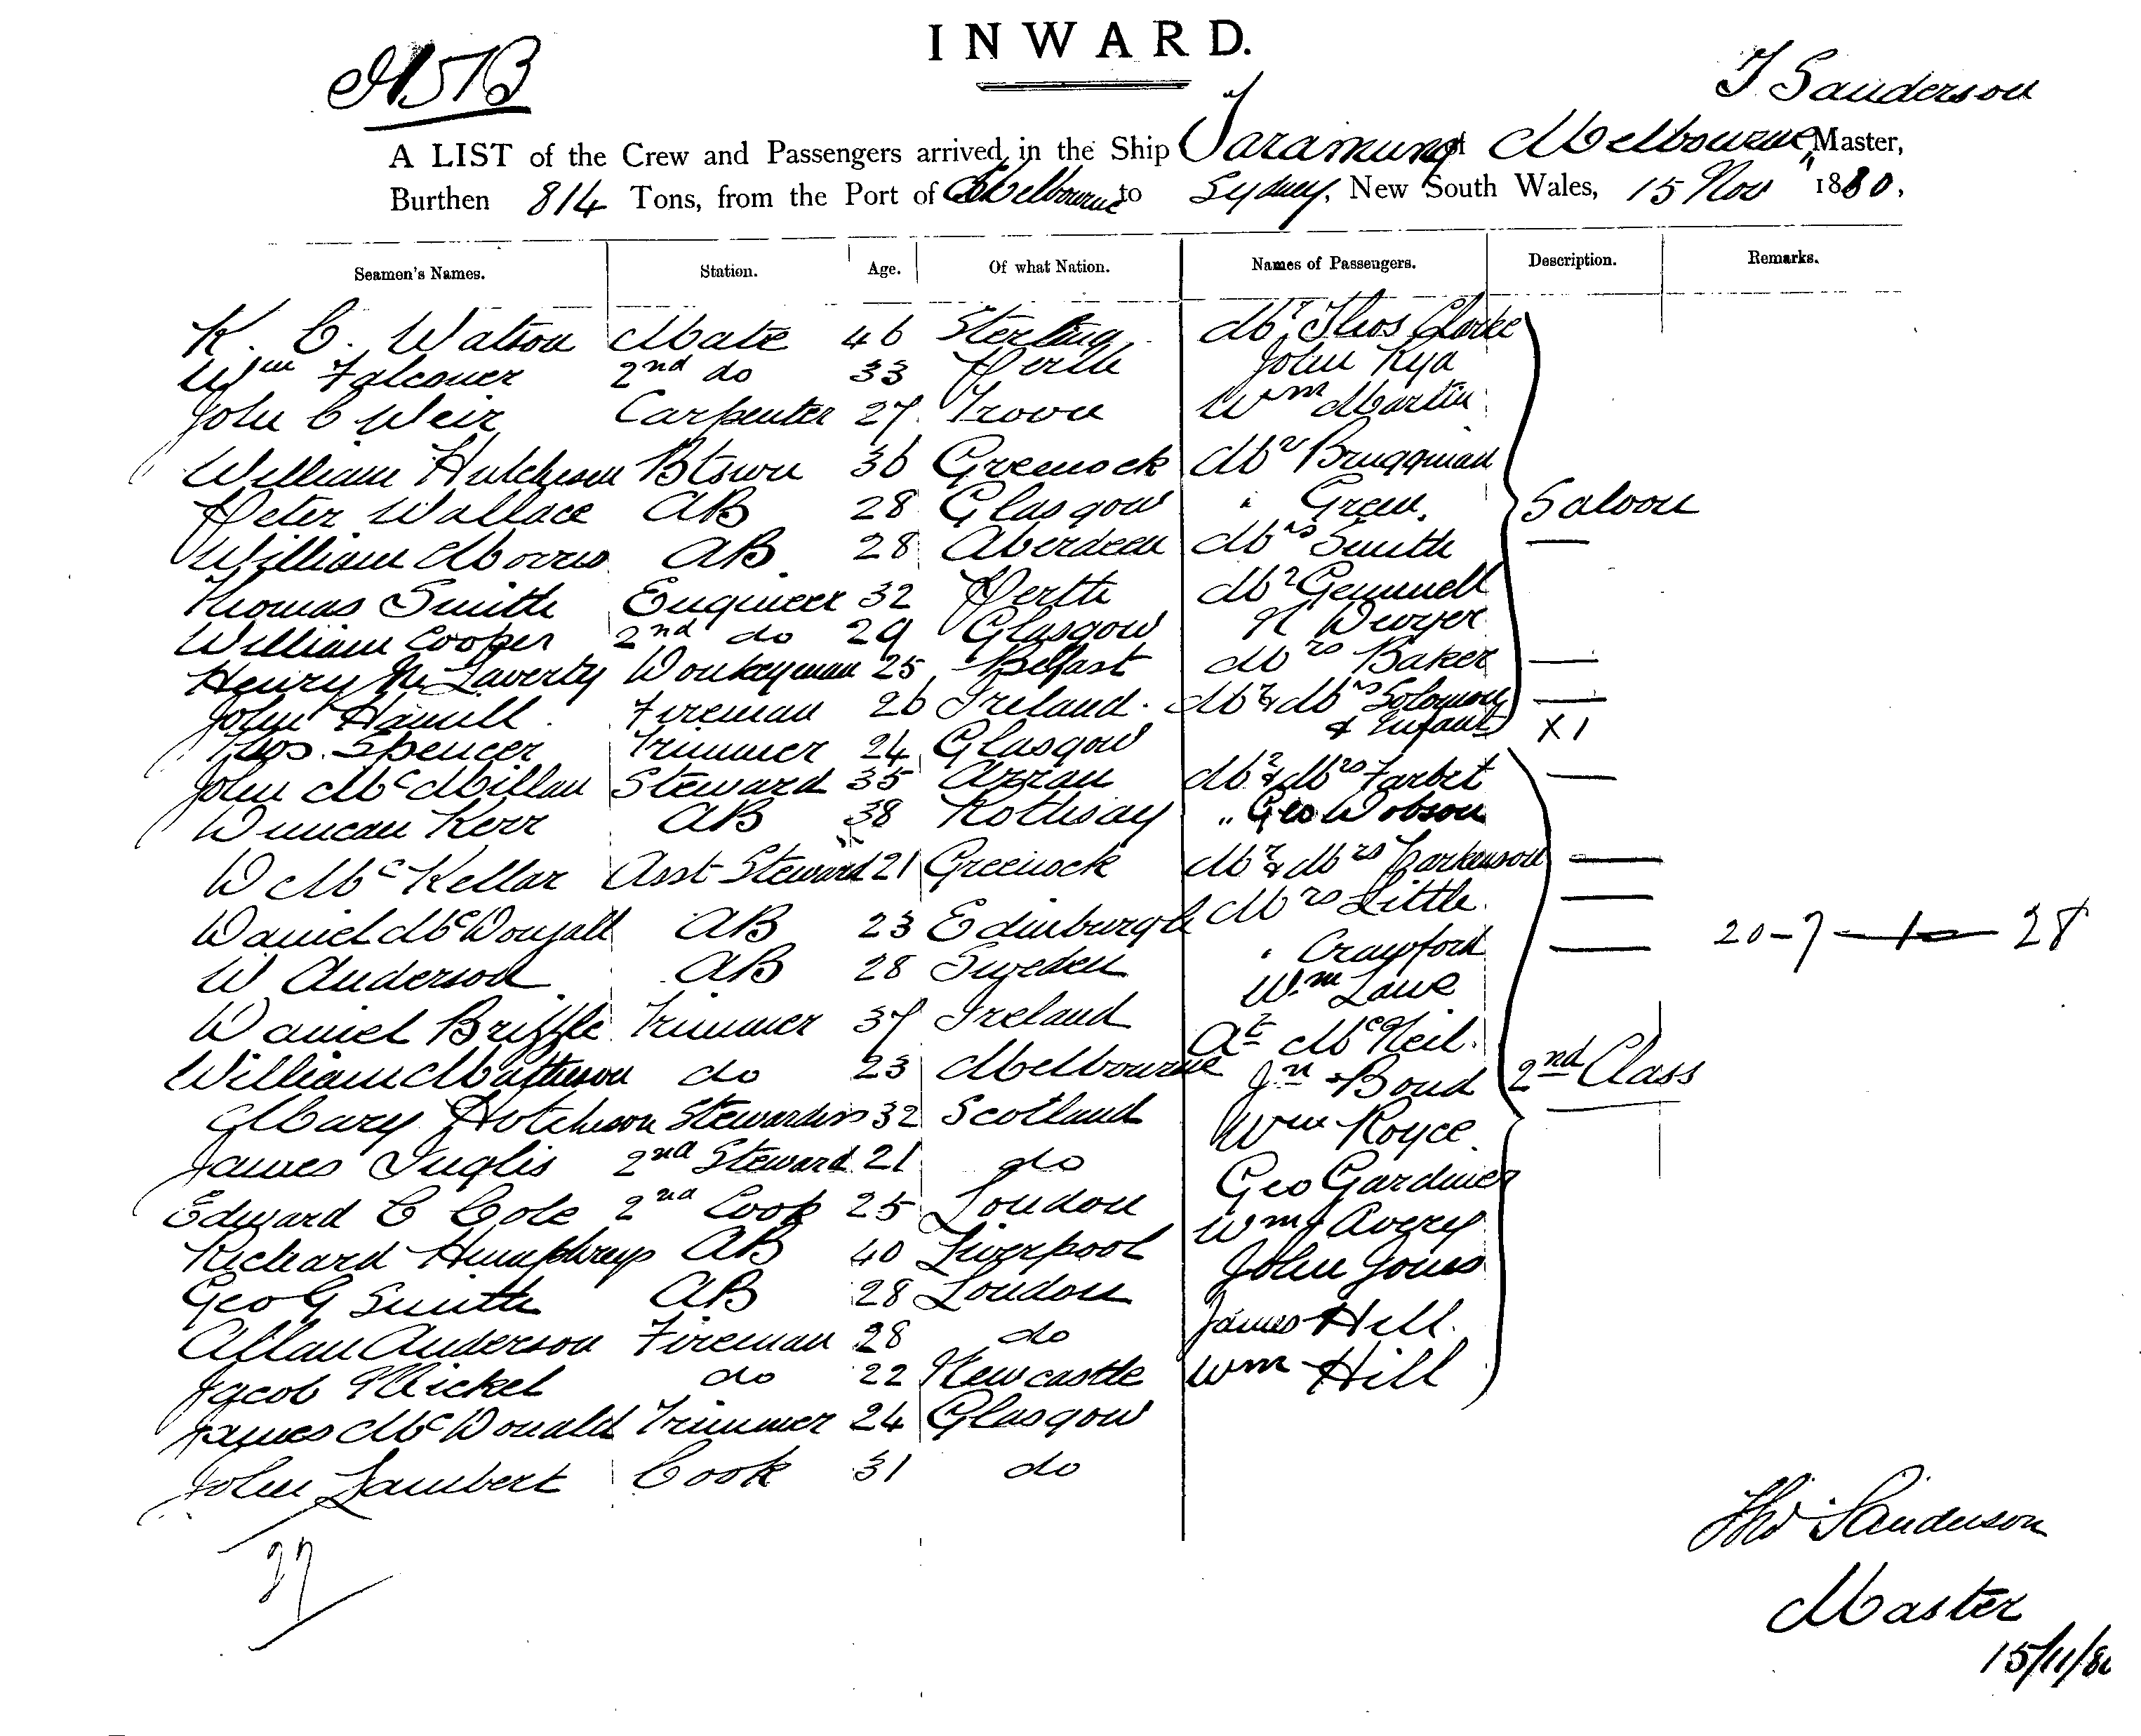 INWARD.
T Sanderson
A LIST of the Crew and Passengers arrived in the Ship Taramung of Melbourne, Master,
Burthen 814 Tons, from the Port of Melbourne to Sydney, New South Wales, 15 Nov 1880.
Seamen's Names. Station. Age. Of what Nation. Names of Passengers. Description. Remarks.
K. C. Watson Mate 46 Sterling Mr Thos Clarke
Wm Falconer 2nd do 33 Perth John Rya
John C Weir Carpenter 27 Troon Wm Martin
William Hutcheson Btswn 36 Greenock Mr Bruggman
Peter Wallace AB 28 Glasgow " Green. Saloon
William Morris AB 28 Aberdeen Mrs Smith —
Thomas Smith Engineer 32 Perth Mr Gemmell
William Cooper 2nd do 29 Glasgow N Dwyer
Henry Mc Laverty Donkeyman 25 Belfast Mrs Baker —
John Hamill Fireman 26 Ireland. Mr & Mrs Solomon —
& Infant X 1
Thos. Spencer Trimmer 24 Glasgow
John McMillan Steward 35 Arran Mr & Mrs Tarbet —
Duncan Kerr AB 38 Rothsay " Geo Dobson
D McKellar Asst Steward 21 Greenock Mr & Mrs Parkinson —
Daniel McDougall AB 23 Edinburgh Mrs Little. —
W Anderson AB 28 Sweden " Crawford — 20-7-1-28
Wm Lowe
Daniel Brizzle Trimmer 37 Ireland At McNeil.
William Matheson do 23 Melbourne Jn Bond 2nd Class
Mary Hotcheson Stewardess 32 Scotland Wm Royce
James Inglis 2nd Steward 21 do Geo Gardiner
Edward C Cole 2nd Cook 25 London Wm J Avery
Richard Humphreys AB 40 Liverpool John Jones
Geo G Smith AB 28 London
Allan Anderson Fireman 28 do James Hill.
Jacob Mickel do 22 Newcastle Wm Hill
James McDonald Trimmer 24 Glasgow
John Lambert Cook 31 do
27
Thos Sanderson
Master
15/11/80